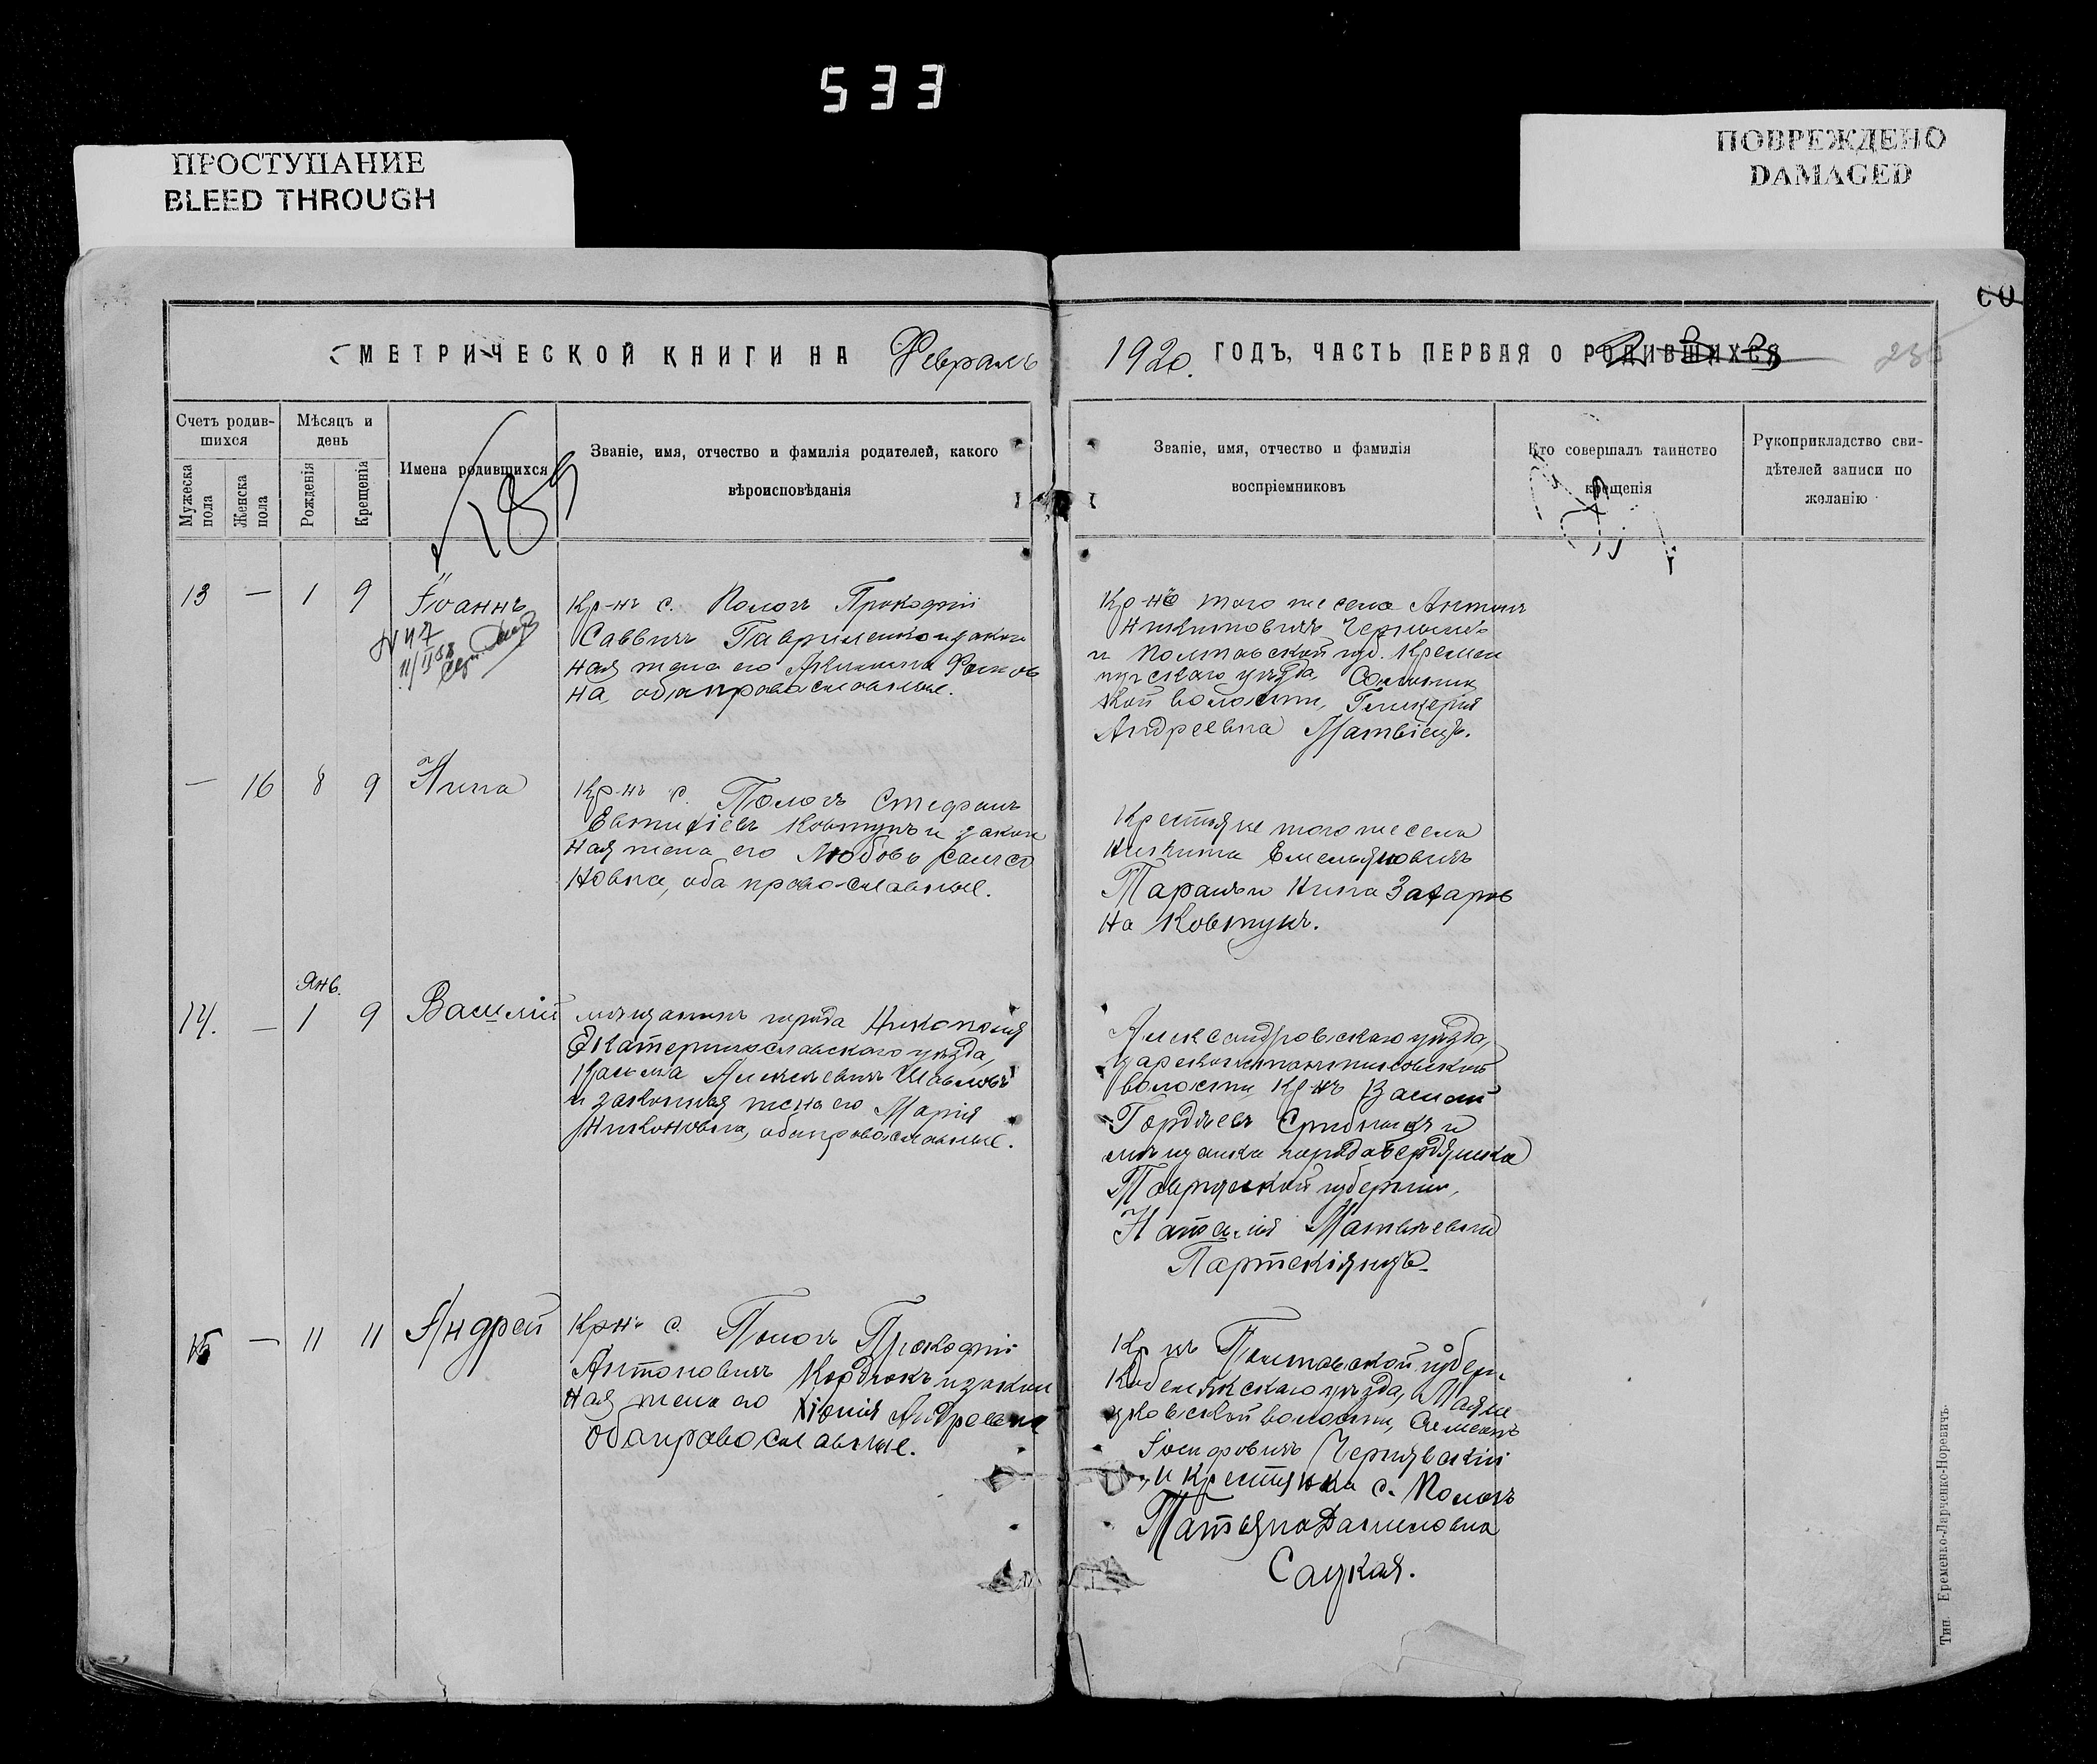 533
ПРОСТУПАНИЕ
BLEED THROUGH
ПОВРЕЖДЕНО
DAMAGED
60
МЕТРИЧЕСКОЙ КНИГИ НА Февраль
1920 ГОДЪ, ЧАСТЬ ПЕРВАЯ О РОДИВШИХСЯ
Счетъ родив-
шихся
Мужеска
пола
Женска
пола
Мѣсяцъ и
день
Рожденія
Крещенія
Имена родившихся
189
Званіе, имя, отчество и фамилія родителей, какого
вѣроисповѣданія
Званіе, имя, отчество и фамилія
воспріемниковъ
Кто совершалъ таинство
крещенія
Рукоприкладство сви-
дѣтелей записи по
желанію
13 — 1 9 Іоаннъ
N 47
Кр-нъ с. Пологъ Прокофій
Саввичъ Гавриленко и закон
ная жена его Акилина Фоков
на, оба православные.
Кр-нъ того же села Антонъ
Никитовичъ
и Полтавской губ. Кремен
чугскаго уѣзда,
кой волости, Гликерія
Андреевна Матвіецъ.
— 16 8 9 Нина
Кр-нъ с. Пологъ Стефанъ
Евтихіевъ Ковтунъ и закон
ная жена его Любовь Самсо
новна, оба православные.
Крестьяне того же села
Никита Емельяновичъ
Таранъ и Нина Захаров
на Ковтунъ.
Янв.
14. — 1 9 Василій
мѣщанинъ города Никополя
Екатеринославскаго уѣзда,
Косьма Алексѣевичъ
и законная жена его Марія
Никоновна, оба православные.
Александровскаго уѣзда,
Царевоконстантиновской
волости кр-нъ Василій
Гордѣевъ и
мѣщанка города Бердянска
Таврической губерніи,
Наталія Матвѣевна
15 — 11 11 Андрей
Крнъ с. Пологъ Прокофій
Антоновичъ Кордюкъ и закон
ная жена его Хіонія Андреевна
оба православные.
Кр нъ Полтавской губерн.
Кобелякскаго уѣзда,
волости, Семенъ
Іосифовичъ Чернявскій
и крестьянка с. Пологъ
Татьяна Даниловна
Сацкая.
Тип. Еременко-Ларченко-Норевичъ.